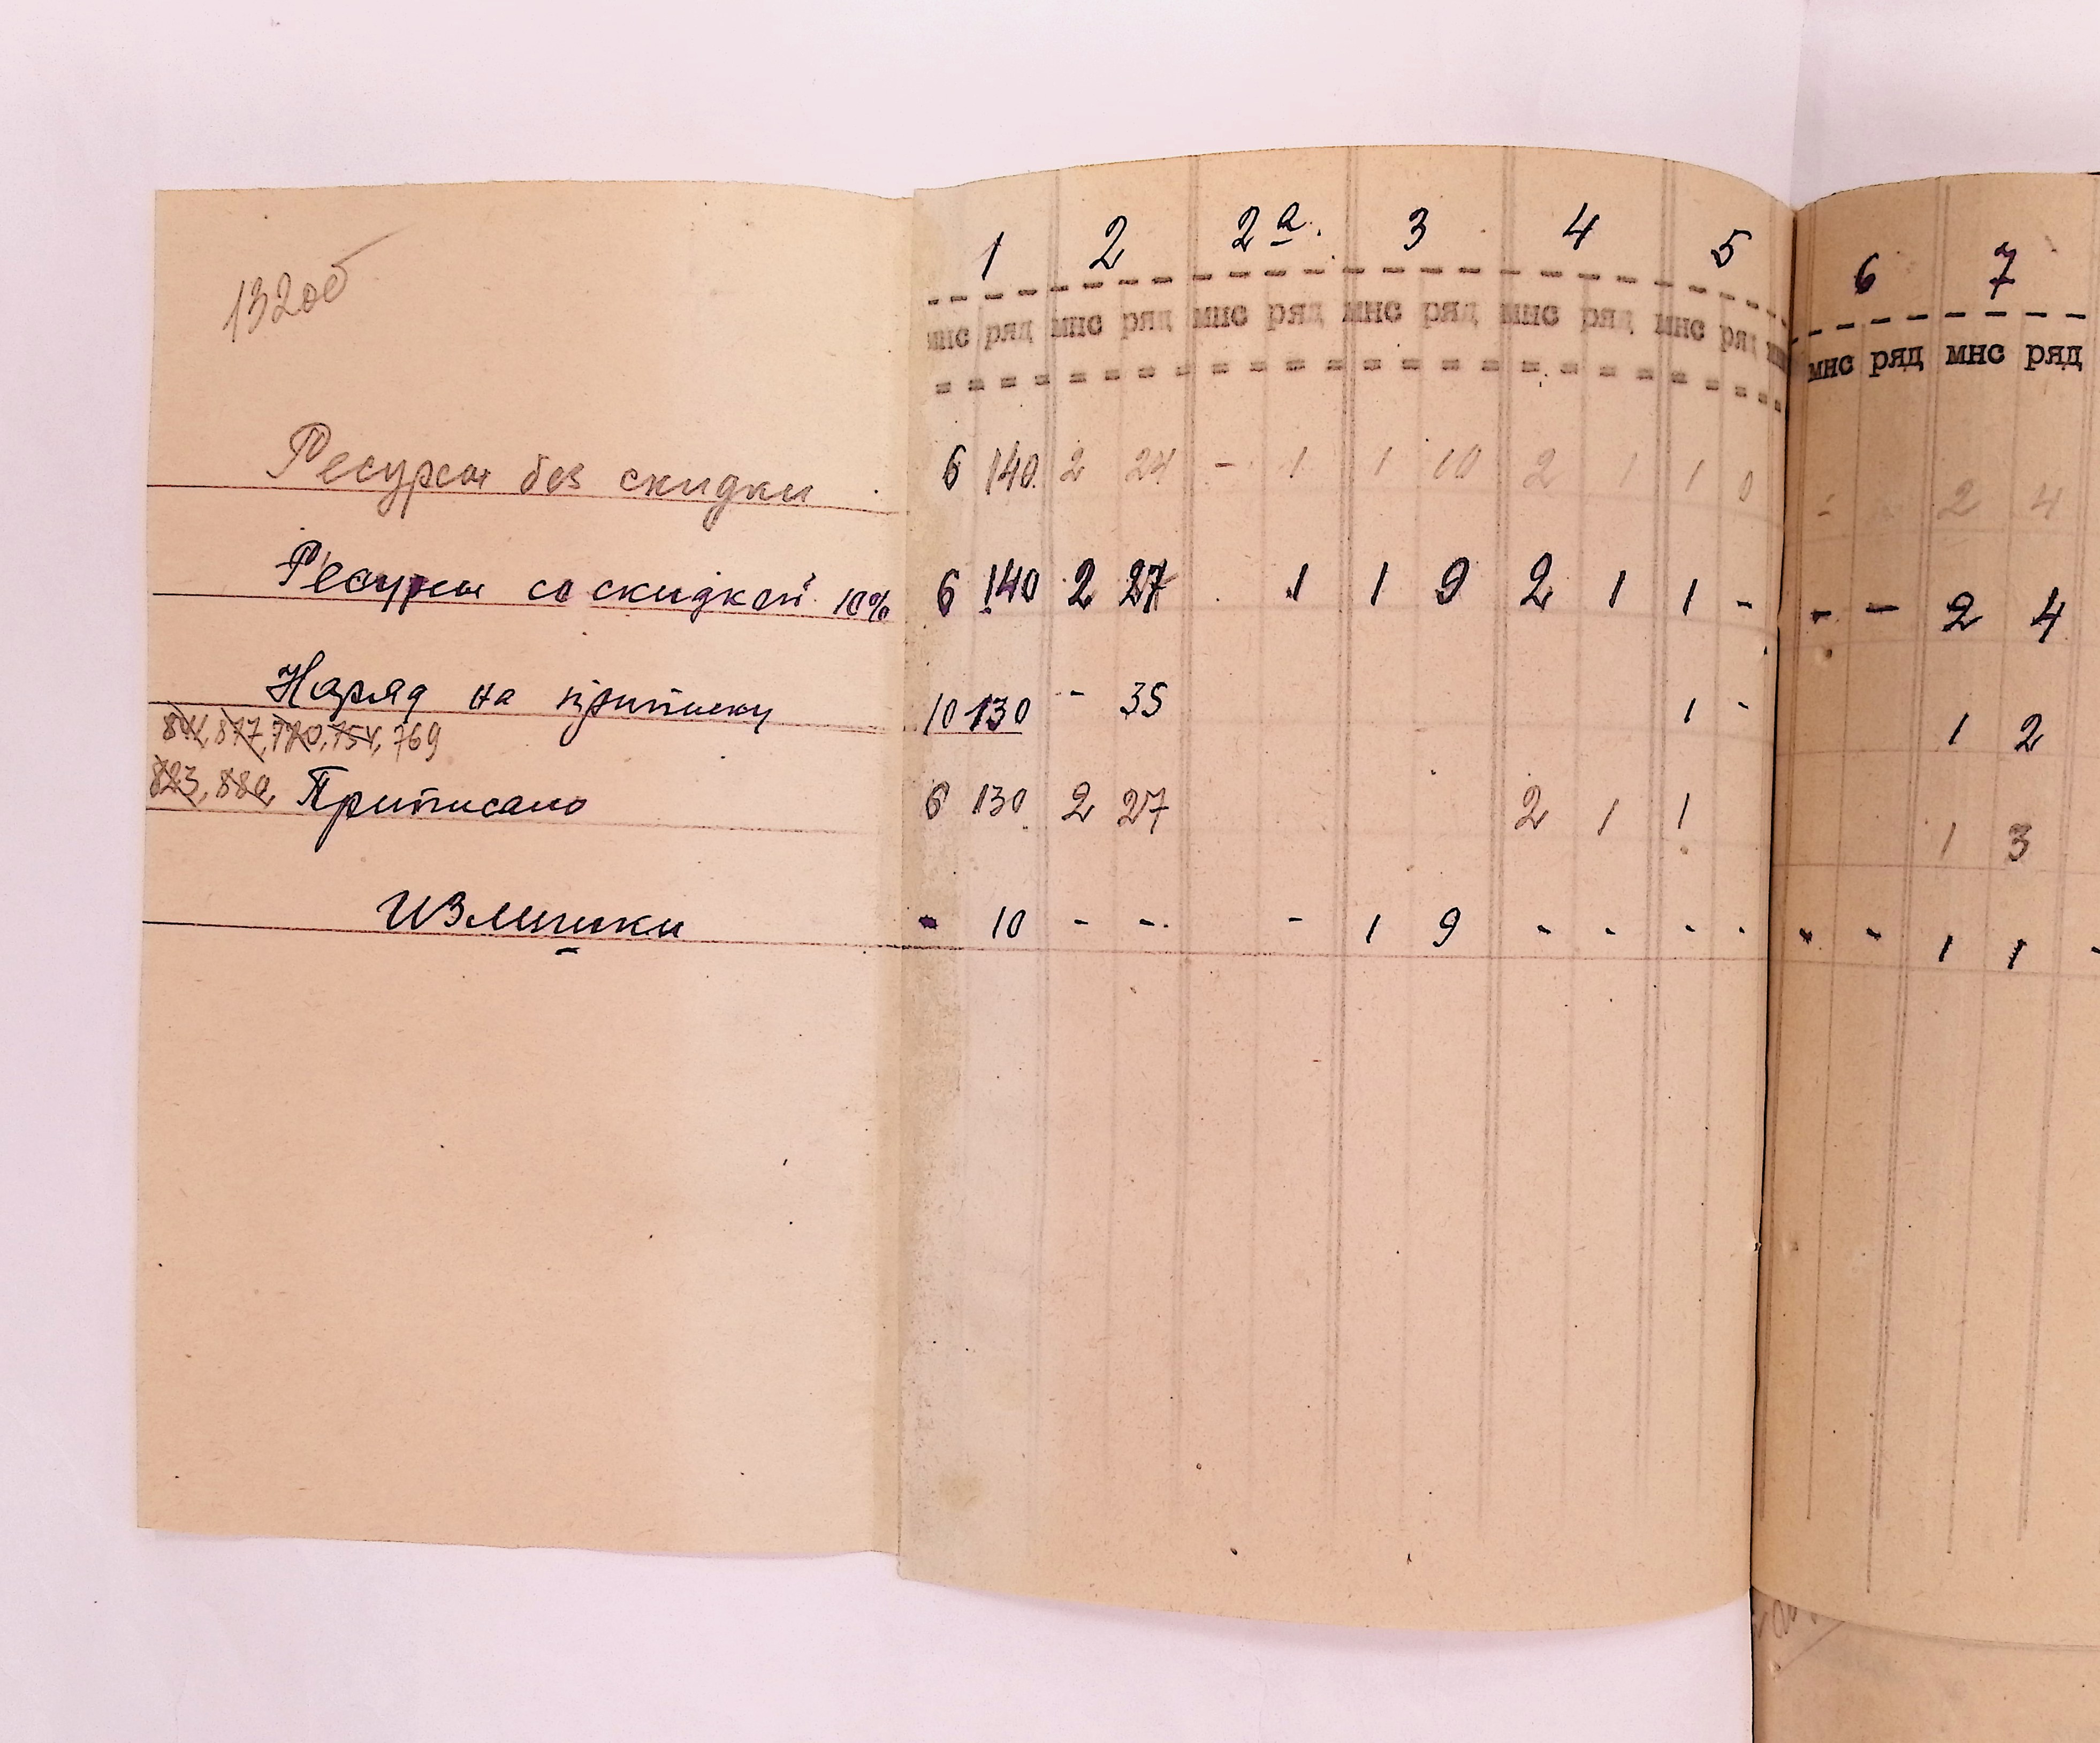 132об
1 2 2а. 3 4 5 6 7
мнс ряд мнс ряд мнс ряд мнс ряд мнс ряд мнс ряд мнс ряд мнс ряд
Ресурсы без скидки 6 140 2 24 - 1 1 10 2 1 1 0 - 2 4
Ресурсы со скидкой 10% 6 140 2 27 1 1 9 2 1 1 - - - 2 4
Наряд на приписку 10 130 - 35 1 - 1 2
844, 877, 770, 754, 769
823, 880, Приписано 6 130 2 27 2 1 1 1 3
Излишки - 10 - - - 1 9 - - - - - - 1 1 -